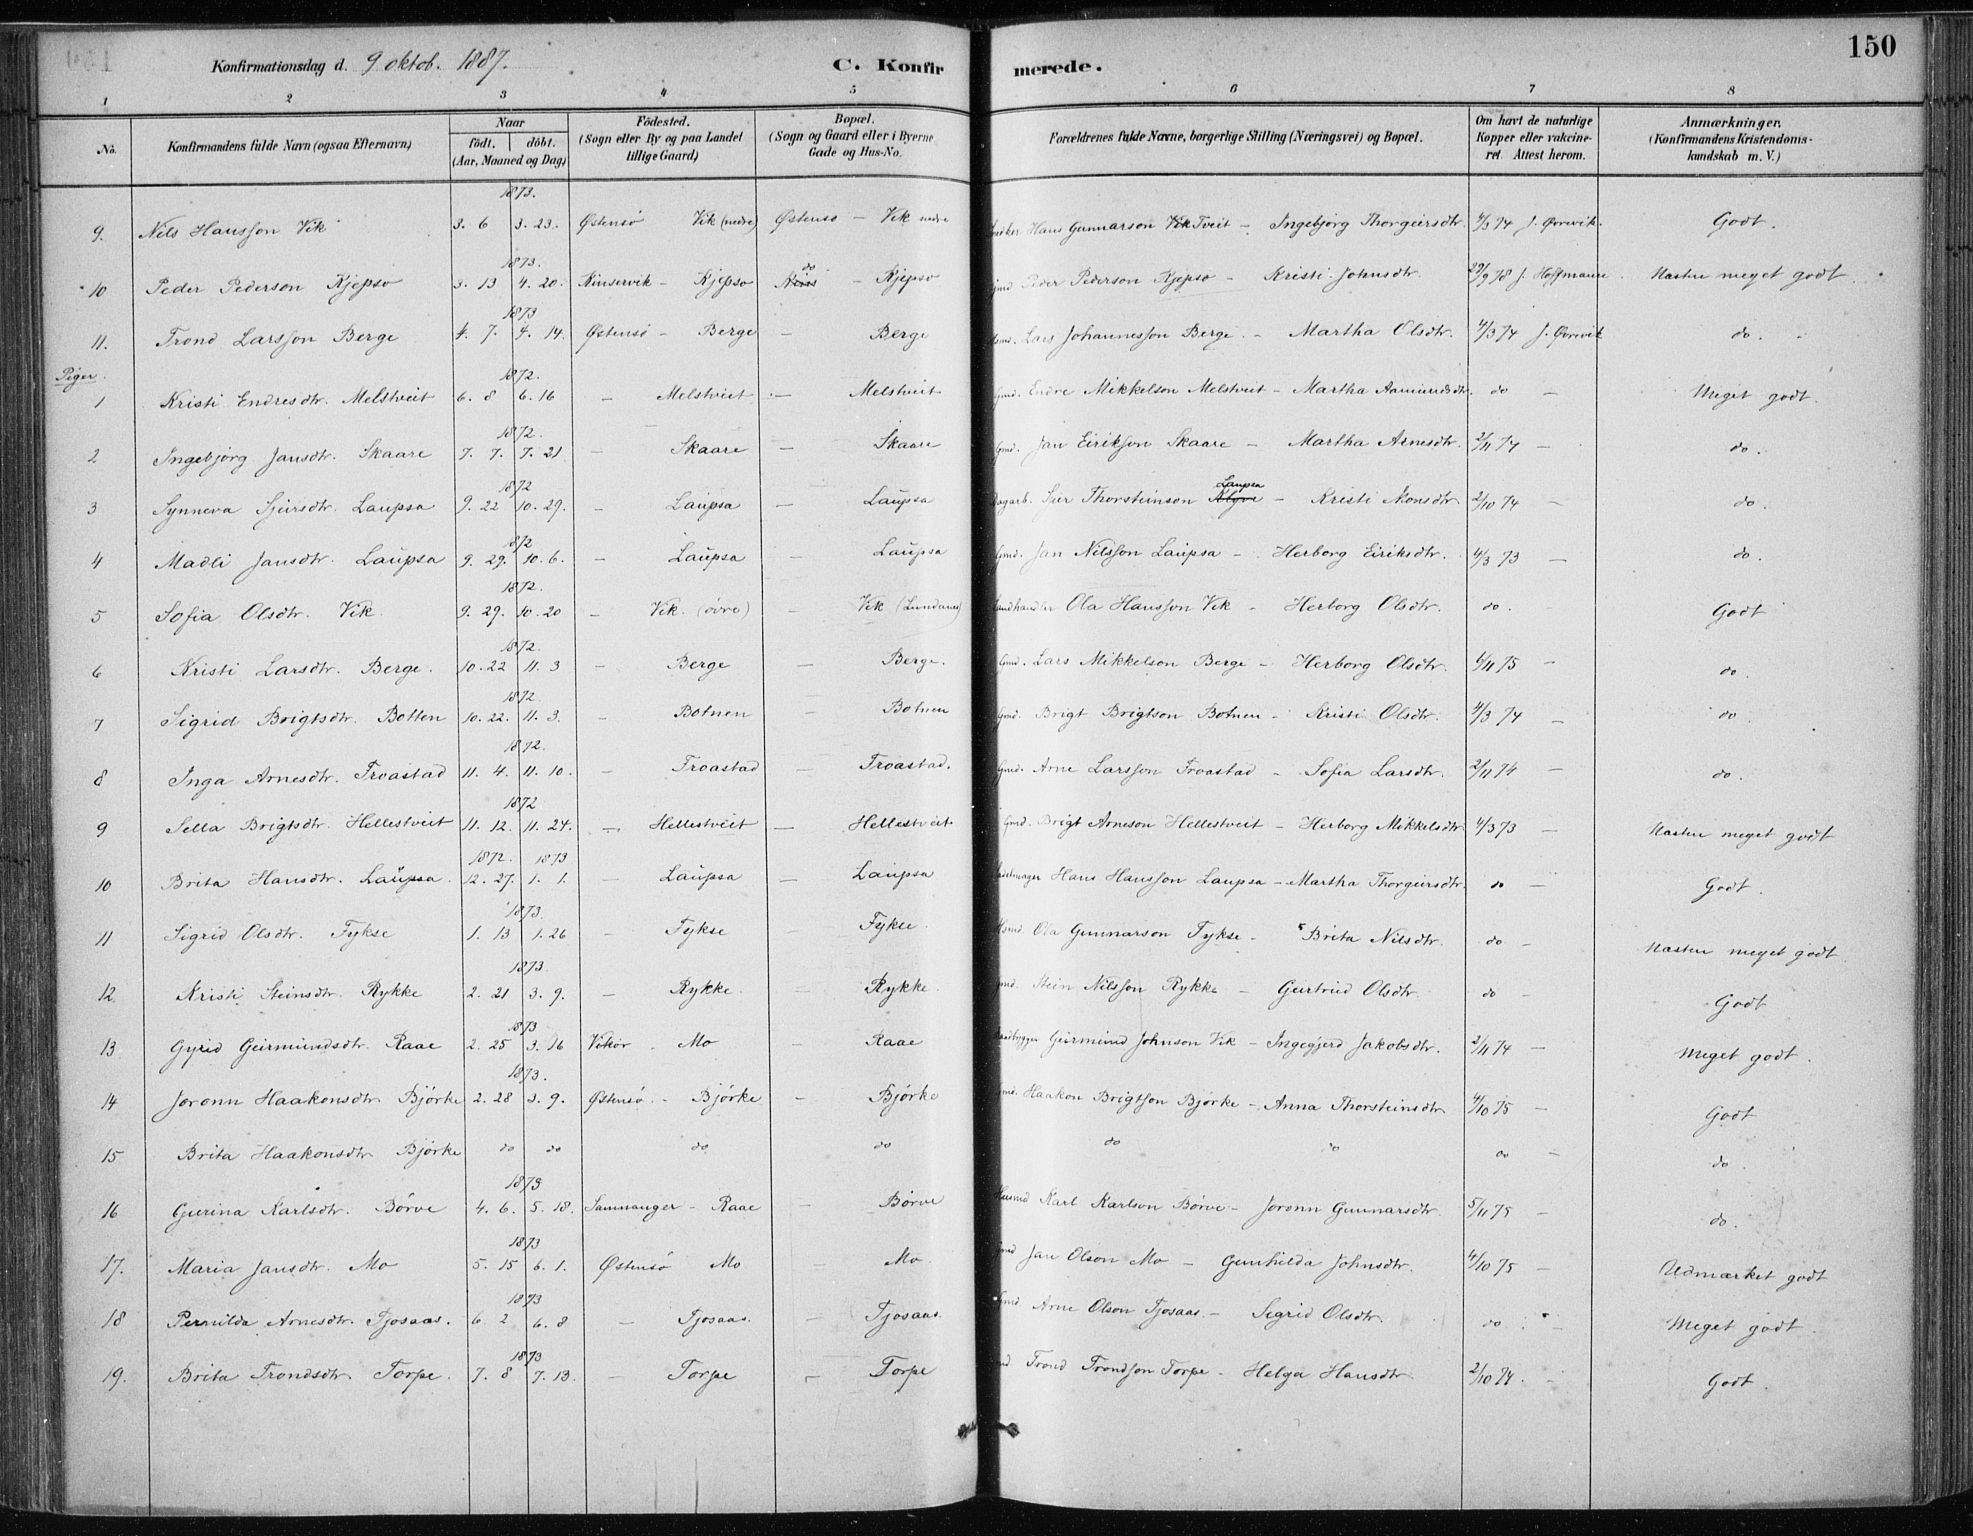 150
Konfirmationsdag d. 9 oktob. 1887. C. Konfirmerede.
1 2 3 4 5 6 7 8
No. Konfirmandens fulde Navn (ogsaa Efternavn) Naar födt. döbt. (Aar, Maaned og Dag) Födested. (Sogn eller By og paa Landet tillige Gaard) Bopæl. (Sogn og Gaard eller i Byerne Gade og Hus-No. Forældrenes fulde Navne, borgerlige Stilling (Næringsvei) og Bopæl. Om havt de naturlige Kopper eller vakcineret Attest herom. Anmærkninger. (Konfirmandens Kristendomskundskab m. V.)
1873.
9. Nils Hansson Vik 3. 6 3. 23. Östensö Vik (nedre) Östensö — Vik nedre Hans Gunnarson Vik Tveit — Ingebjörg Thorgeirsdtr. 4/3 74 J. Qvrevik. Godt.
1873.
10 Peder Pederson Kjepso 3. 13 4. 20. Kinservik — Kjepso do — Kjepso Gmd Peder Pederson Kjepso — Kristi Johnsdtr. 29/9 78 J. Hoffmann Næsten meget godt
1873
11. Trond Larsson Berge 4. 7. 4. 14. Östensö — Berge — Berge Hsmd. Lars Johannesson Berge. — Martha Olsdtr. 4/3 74 J. Qvrevik do.
Piger.
1872.
1 Kristi Endresdtr. Melstveit 6. 8 6. 16 — Melstveit — Melstveit Gmd. Endre Mikkelson Melstveit — Martha Aamundsdtr. do — Meget godt.
1872.
2 Ingebjörg Jansdtr. Skaare 7. 7. 7. 21 — Skaare — Skaare Gmd. Jan Eirikson Skaare — Martha Arnesdtr. 2/11 74 — do.
1872
3 Synneva Sjursdtr. Laupsa 9. 22 10. 29. — Laupsa — Laupsa Dagarb. Sjur Thorsteinson Klyve Laupsa — Kristi Monsdtr. 2/10 74 — do.
1872
4 Madli Jansdtr. Laupsa 9. 29. 10. 6. — Laupsa — Laupsa Gmd. Jan Nilsson Laupsa — Herborg Eiriksdtr. 4/3 73 — do.
1872.
5 Sofia Olsdtr. Vik 9. 29. 10. 20 — Vik (övre) — Vik Landhandler Ola Hansson Vik — Herborg Olsdtr. do. — Godt
1872.
6 Kristi Larsdtr. Berge. 10. 22 11. 3 — Berge — Berge. Gmd. Lars Mikkelson Berge — Herborg Olsdtr. 4/11 75 — do.
1872
7 Sigrid Brigtsdtr. Botten 10. 22. 11. 3. — Botnen — Botnen Gmd. Brigt Brigtson Botnen — Kristi Olsdtr. 4/3 74 — do.
1872.
8 Inga Arnesdtr. Froastad 11. 4. 11. 10. — Froastad — Froastad. Gmd. Arne Larsson Froastad — Sofia Larsdtr. 2/11 74 — do.
1872
9 Sella Brigtsdtr. Hellestveit 11. 12. 11. 24. — Hellestveit — Hellestveit Gmd. Brigt Arneson Hellestveit — Herborg Mikkelsdtr. 4/3 73 — Næsten meget godt
1872. 1873
10 Brita Hansdtr. Laupsa. 12. 27. 1. 1. — Laupsa — Laupsa Hans Hansson Laupsa — Martha Thorgeirsdtr. do — Godt.
1873.
11 Sigrid Olsdtr. Fykse 1. 13 1. 26 — Fykse — Fykse. Hsmd. Ola Gunnarson Fykse — Brita Nilsdtr. do — Næsten meget godt
1873.
12 Kristi Steinsdtr. Rykke 2. 21 3. 9. — Rykke — Rykke. Gmd. Stein Nilsson Rykke — Gertrud Olsdtr. do — Godt
1873
13 Gyrid Geirmundsdtr. Raae 2. 25 3. 16 Vikör Mo — Raae Geirmund Johnson Vik — Ingegjerd Jakobsdtr. 2/11 74 — Meget godt.
1873.
14 Joronn Haakonsdtr. Bjórke 2. 28 3. 9. Östensö — Bjórke — Bjórke Gmd. Haakon Brigtson Bjórke — Anna Thorsteinsdtr. 4/10 75 — Godt
15 Brita Haakonsdtr. Bjórke do do do do do do do — do.
1873
16 Gurina Karlsdtr. Börve 4. 6. 5. 18. Samnanger — Raae — Börve Husmd Karl Karlson Börve — Joronn Gunnarsdtr. 5/11 75 — do.
1873
17. Maria Jansdtr. Mo 5. 15 6. 1. Östensö Mo Mo Gmd Jan Olson Mo — Gunhilda Johnsdtr. 4/10 75 — Udmærket godt
1873
18 Pernilda Arnesdtr. Tjosaas. 6. 2 6. 8 — Tjosaas. — Tjosaas. Gmd. Arne Olson Tjosaas — Sigrid Olsdtr. do — Meget godt.
1873
19. Brita Trondsdtr. Torpe. 7. 8 7. 13. — Torpe — Torpe Trond Trondson Torpe — Helga Hansdtr. 2/10 74. — Godt.